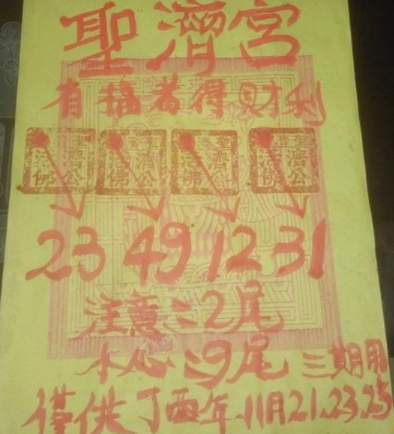 聖濟宮
有福者得財利
濟公活佛 濟公活佛 濟公活佛 濟公活佛
23 49 12 31
注意:2尾
小心:9尾 三期用
僅供丁酉年11月21.23.25